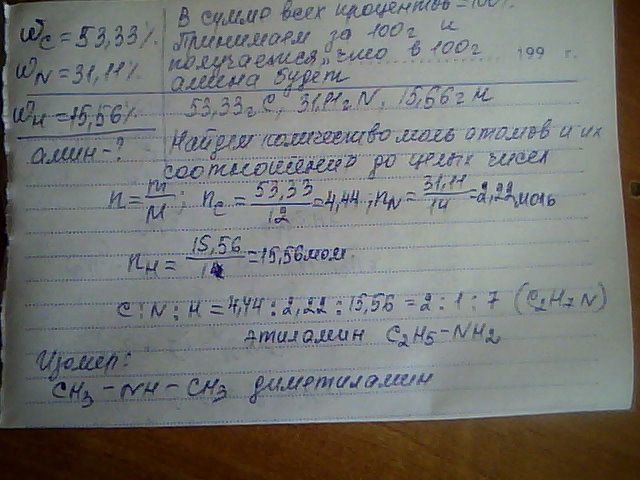 В сумме всех процентов = 100%.
Wc = 53,33%.
Принимаем за 100г и
получается, что в 100г
199 г.
WN = 31,11%
амина будет
WH = 15,56%
53,33г C, 31,11г N, 15,56г H
амин - ?
Найдем количество моль атомов и их
соотношений до целых чисел
n = m/M ; nC = 53,33/12 = 4,44 ; nN = 31,11/14 = 2,22 моль
nH = 15,56/1 = 15,56 мол.
C : N : H = 4,44 : 2,22 : 15,56 = 2 : 1 : 7 (C2H7N)
этиламин C2H5-NH2
Изомер:
CH3 - NH - CH3 диметиламин